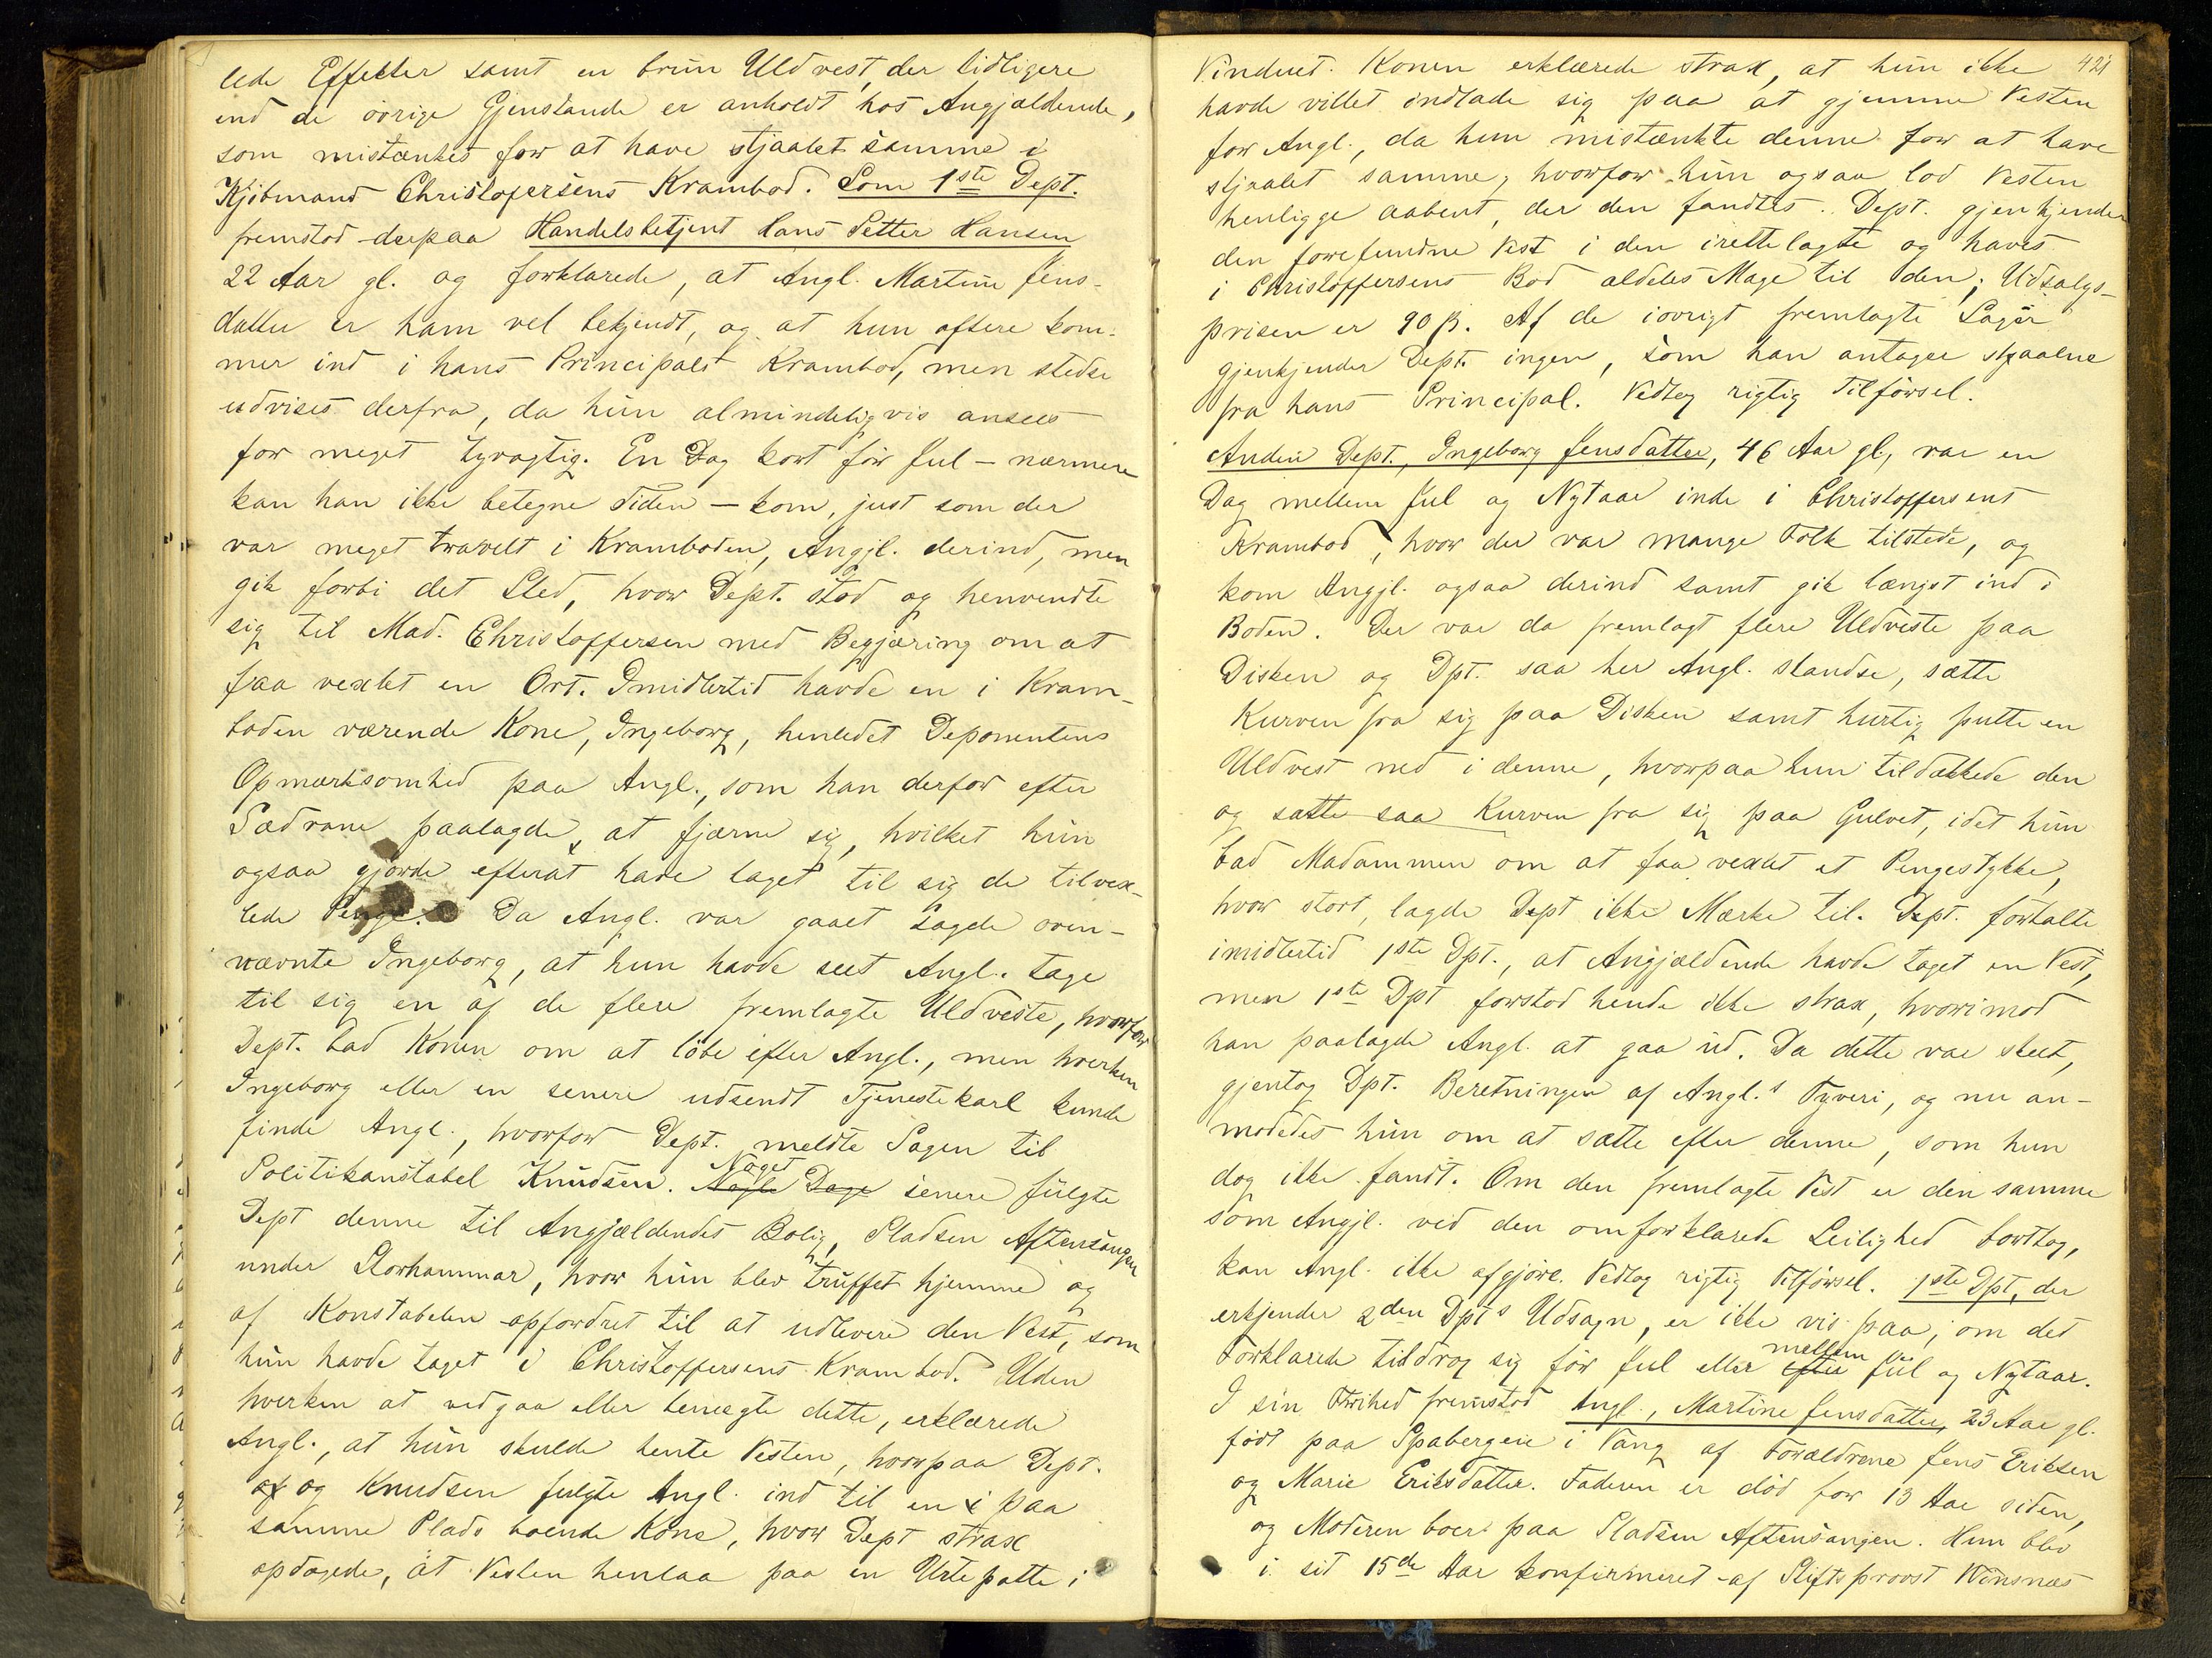 lede Effekter samt en brun Uldvest, der tidligere
end de övrige Gjenstande er anholdt hos Angjældende,
som mistænkes for at have stjaalet samme i
Kjöbmand Christofersens Krambod. Som 1ste Dept.
fremstod derpaa Handelsbetjent Hans Petter Hansen
22 Aar gl. og forklarede, at Angl. Martine Jens-
datter er ham vel bekjendt, og at hun oftere kom-
mer ind i hans Principals Krambod, men stedse
udvises derfra, da hun almindeligvis ansees
for meget tyvagtig. En Dag kort för Jul – nærmere
kan han ikke betegne Tiden – kom, just som der
var meget travelt i Kramboden, Angjl. derind, men
gik forbi det Sted, hvor Dept. stod og henvendte
sig til Mad. Christoffersen med Begjæring om at
faa vexlet en Ort. Imidlertid havde en i Kram-
boden værende Kone, Ingeborg, henledet Deponentens
Opmærksomhed paa Angl., som han derfor efter
Sædvane paalagde, at fjærne sig, hvilket hun
ogsaa gjorde efterat have taget til sig de tilvex-
lede Penge. Da Angl. var gaaet sagde oven-
nævnte Ingeborg, at hun havde seet Angl. tage
til sig en af de flere fremlagte Uldveste, hvorfor
Dept. bad Konen om at löbe efter Angl., men hverken
Ingeborg eller en senere udsendt Tjenestekarl kunde
finde Angl., hvorfor Dept. meldte Sagen til
Politikonstabel Knudsen. Nogle Dage Noget senere fulgte
Dept denne til Angjældendes Bolig, Pladsen Aftensangen
under Storhammar, hvor hun blev truffet hjemme og
af Konstabelen opfordret til at udlevere den Vest, som
hun havde taget i Christoffersens Krambod. Uden
hverken at vedgaa eller benægte dette, erklærede
Angl., at hun skulde hente Vesten, hvorpaa Dept.
af og Knudsen fulgte Angl. ind til en i paa
samme Plads boende Kone, hvor Dept strax
opdagede, at Vesten henlaa paa en Urtepotte i
421
Vinduet. Konen erklærede strax, at hun ikke
havde villet indlade sig paa at gjemme Vesten
for Angl., da hun mistænkte denne for at have
stjaalet samme, hvorfor hun ogsaa lod Vesten
henligge aabent, der den fandtes. Dept. gjenkjender
den forefundne Vest i den irettelagte og haves
i Christoffersens Bod aldeles Mage til den; Udsalgs-
prisen er 90 ß. Af de iovrigt fremlagte Sager
gjenkjender Dept. ingen, som han antager stjaalne
fra hans Principal. Vedtog rigtig Tilförsel.
Anden Dept., Ingeborg Jensdatter, 46 Aar gl., var en
Dag mellem Jul og Nytaar inde i Christoffersens
Krambod, hvor der var mange Folk tilstede, og
kom Angjl. ogsaa derind samt gik længst ind i
Boden. Der var da fremlagt flere Uldveste paa
Disken og Dpt. saa her Angl. standse, sætte
Kurven fra sig paa Disken samt hurtig putte en
Uldvest ned i denne, hvorpaa hun tildækkede den
og satte saa Kurven fra sig paa Gulvet, idet hun
bad Madammen om at faa vexlet et Pengestykke,
hvor stort, lagde Dept ikke Mærke til. Dept. fortalte
imidlertid 1ste Dpt., at Angjældende havde taget en Vest,
men 1ste Dpt forstod hende ikke strax, hvorimod
han paalagde Angl. at gaa ud. Da dette var skeet,
gjentog Dpt. Beretningen af Angl.s Tyveri, og nu an-
modedes hun om at sætte efter denne, som hun
dog ikke fandt. Om den fremlagte Vest er den samme
som Angjl. ved den omforklarede Leilighed borttog,
kan Angl. ikke afgjöre. Vedtog rigtig Tilförsel. 1ste Dpt, der
erkjender 2den Dpts Udsagn, er ikke vis paa, om det
Forklarede tildrog sig för Jul eller efter mellem Jul og Nytaar.
I sin Frihed fremstod Angl., Martine Jensdatter, 23 Aar gl.
födt paa Spabergeie i Vang af Forældrene Jens Eriksen
og Marie Eriksdatter. Faderen er död for 13 Aar siden,
og Moderen boer paa Pladsen Aftensangen. Hun blev
i sit 15de Aar konfirmeret af Stiftsprovst Wensnæs